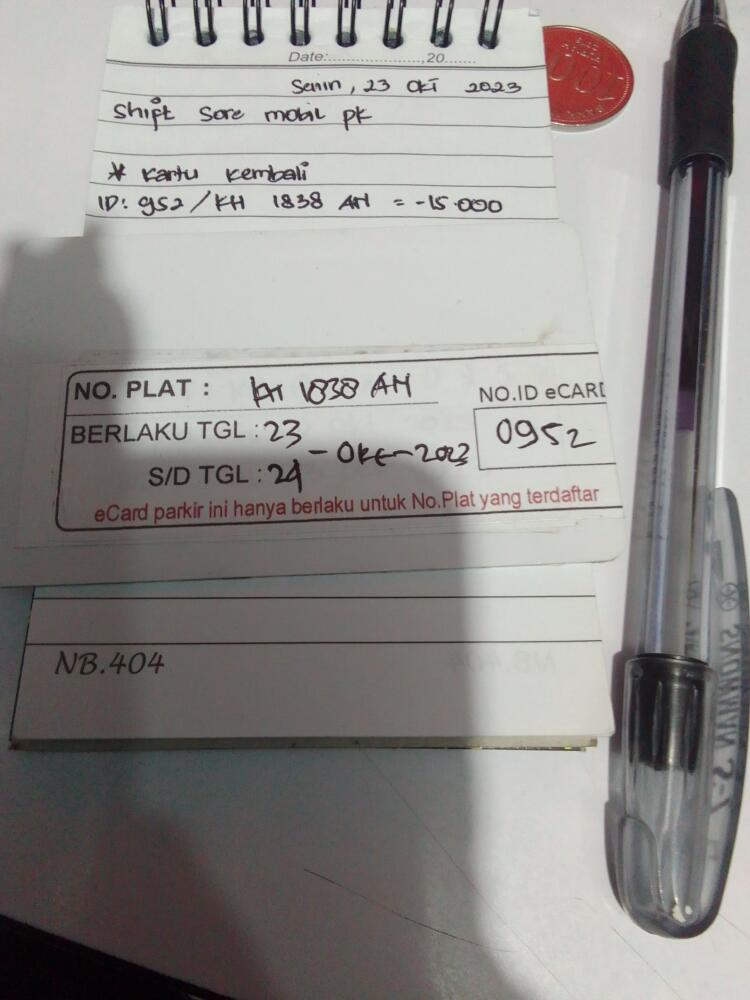 Date:....................,20.......
Senin, 23 Okt 2023
Shift Sore mobil pk
* Kartu kembali
ID: 952 / KH 1838 AH = -15.000
NO. PLAT : KH 1838 AH
NO.ID eCARD
BERLAKU TGL : 23
0952
- Okt - 2023
S/D TGL : 24
eCard parkir ini hanya berlaku untuk No.Plat yang terdaftar
NB.404
SNOWMAN